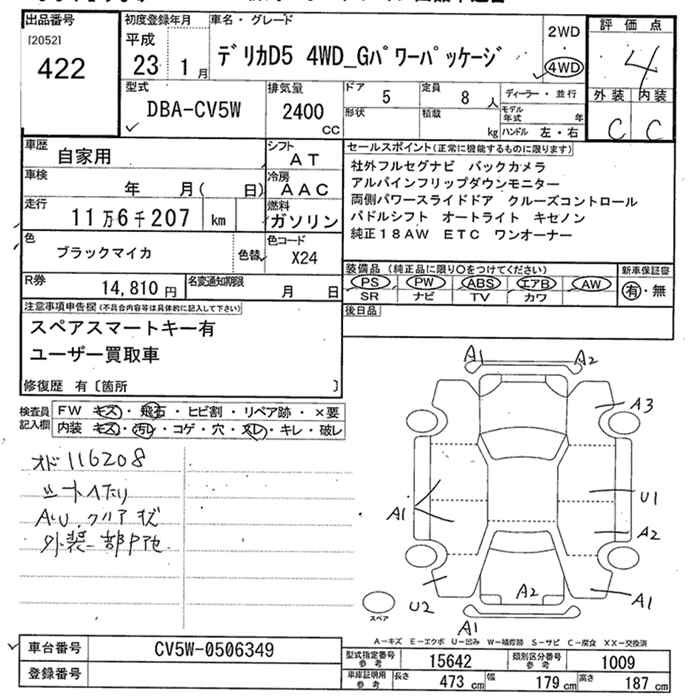 出品番号
[2052]
422
初度登録年月
平成
23 1月
車名・グレード
デリカD5 4WD_Gパワーパッケージ
2WD
・
4WD
評価点
4
外装 内装
C C
型式
DBA-CV5W
排気量
2400
CC
ドア 5
定員 8人
形状
積載 kg
ディーラー・並行
モデル年式 年
ハンドル 左・右
車歴
自家用
シフト
AT
車検
年 月( 日)
冷房
AAC
走行
11万6千207 km
燃料
ガソリン
色
ブラックマイカ
色替
色コード
X24
R券
14,810円
名変通知期限
月 日
セールスポイント(正常に機能するものに限ります)
社外フルセグナビ バックカメラ
アルパインフリップダウンモニター
両側パワースライドドア クルーズコントロール
パドルシフト オートライト キセノン
純正18AW ETC ワンオーナー
装備品(純正品に限り○をつけてください)
PS PW ABS エアB AW
SR ナビ TV カワ
新車保証書
有・無
後日品
注意事項申告欄(不具合内容等は具体的に記入して下さい)
スペアスマートキー有
ユーザー買取車
修復歴 有[箇所 ]
検査員
記入欄
FW キズ・飛石・ヒビ割・リペア跡・×要
内装 キズ・汚レ・コゲ・穴・スレ・キレ・破レ
オド116208
シートヘたり
AU.クリアキズ
外装一部P他
A1 A2
A3
U1
A1
A2
U2
A2
A1
A1
スペア
A－キズ E－エクボ U－凹み W－補修跡 S－サビ C－腐食 XX－交換済
車台番号
CV5W-0506349
登録番号
型式指定番号
参考
15642
類別区分番号
参考
1009
車庫証明用
参考
長さ 473 cm 幅 179 cm 高さ 187 cm